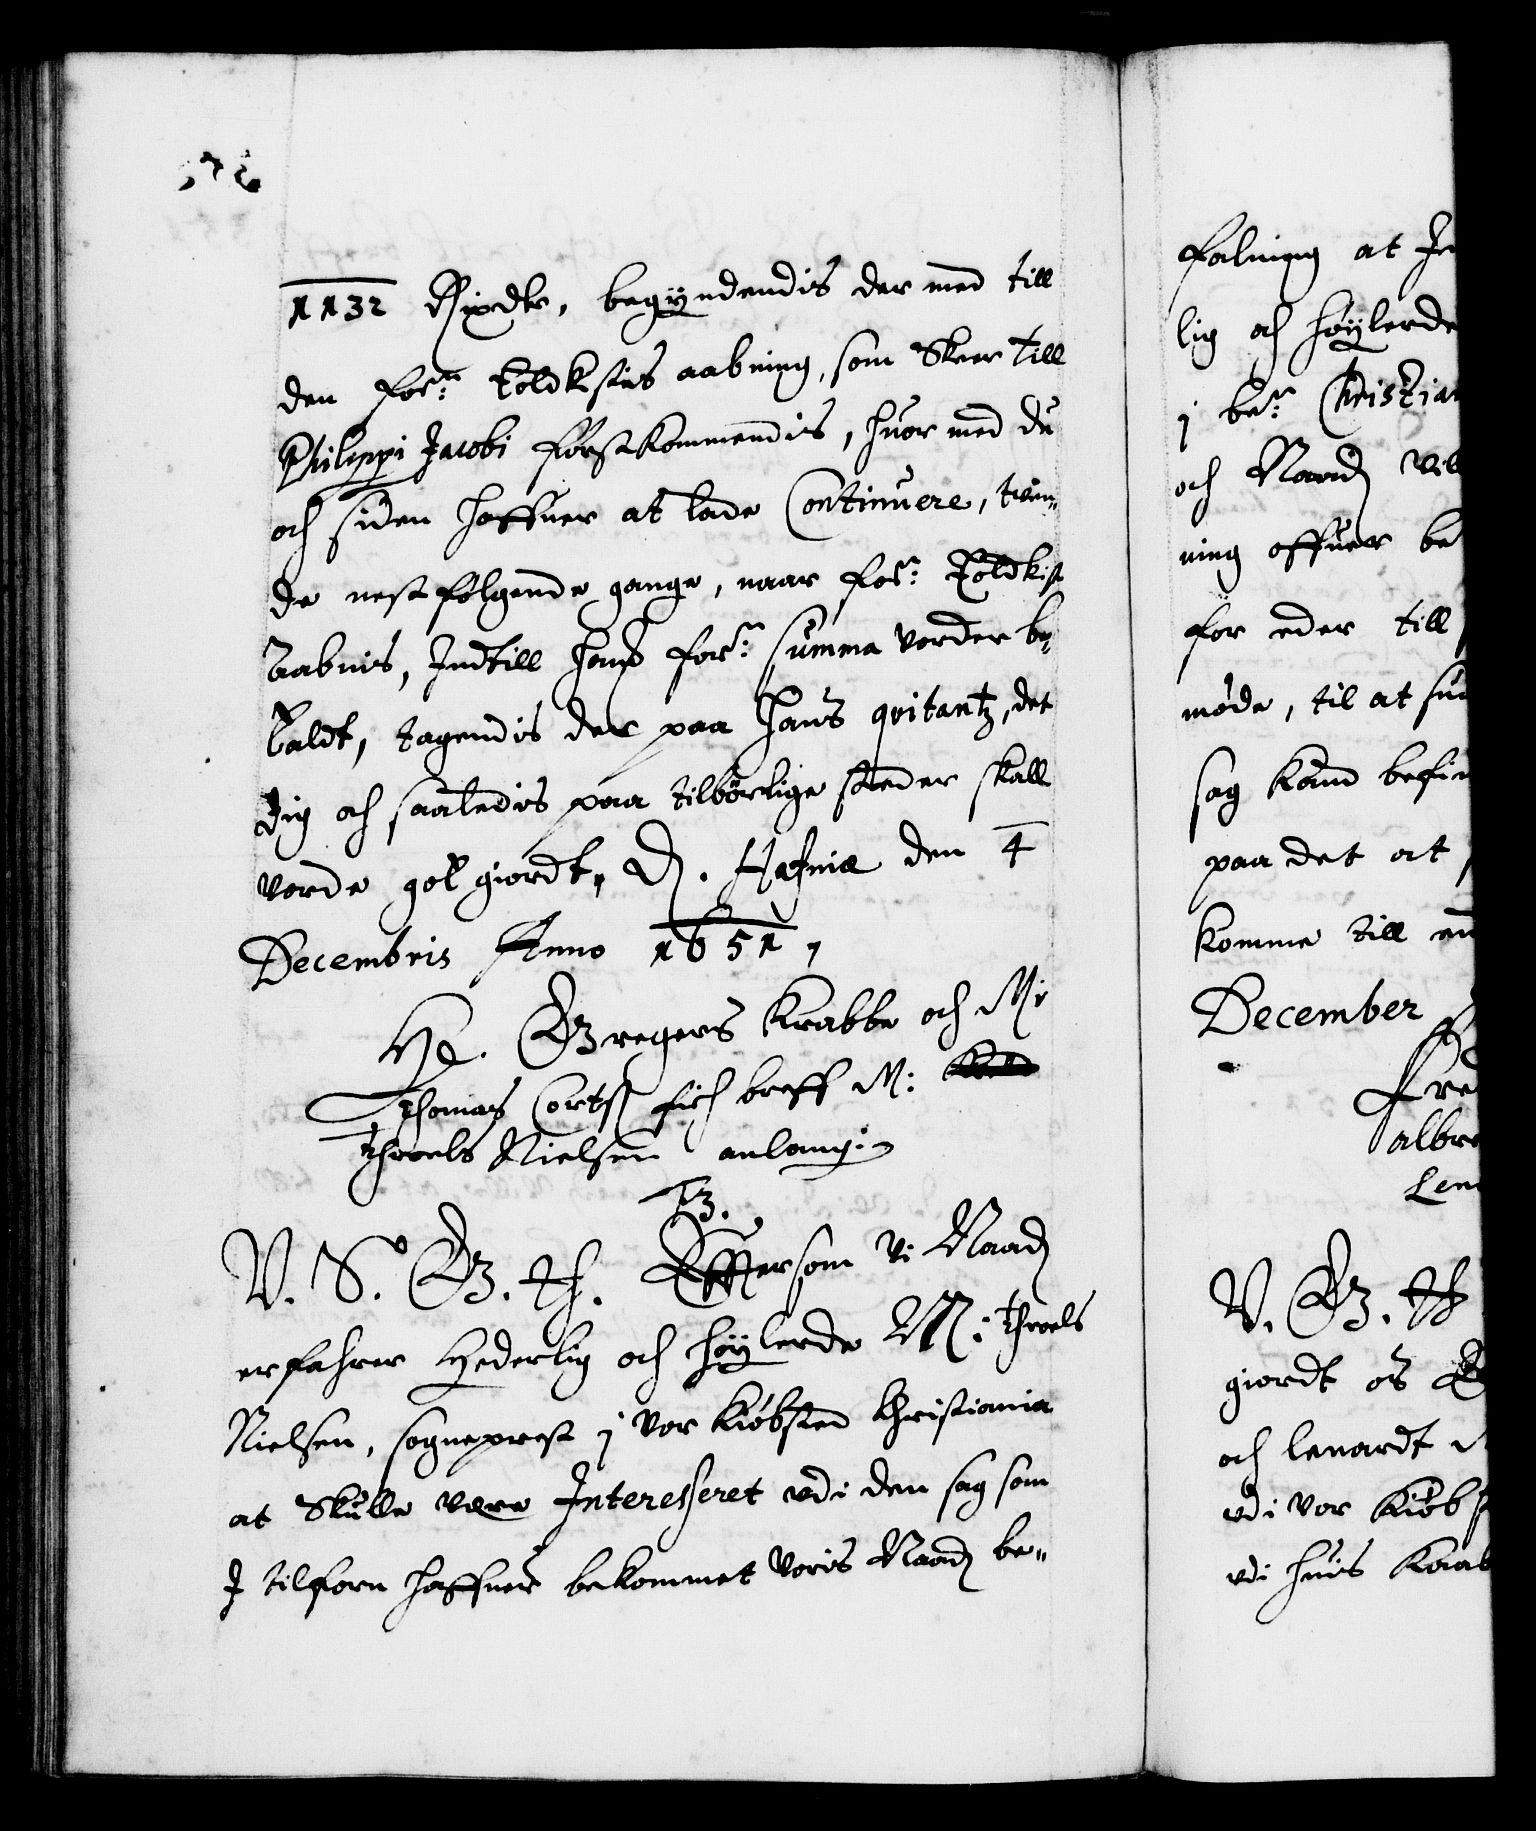 1132 Rixdlr, begyndendis der med till
den forn: toldkistis aabning, som Skeer till
Philippi Jacobi förstkommendis, huor med du
och siden haffuer at lade Continuere, tven¬
de nestfölgende gange, naar forn: Toldkist
aabnis, Indtill hans forn: Summa vorder be¬
talt, tagendis der paa hans qvitantz, det
dig och saaledis paa tilbørlige steder skall
vorde got giordt, D. Hafniæ den 4
Decembris Anno 1651,
He. Gregers Krabbe och M:
Thomas Cortss: fich breff M:
Throels Nielsen anlang:
F3.
V. S. G. T. Effersom Vi Naad:
erfahrer Hederlig och höylerde M: Throels
Nielsen, sogneprest j vor Kiöbsted Christiania
at Skulle være Interesseret vdi den sag som
J tilforn haffuer bekommet voris Naad: be¬
falning at Je
lig och höylerde
j ber: Christian
och Naad: vill
ning offuer be
for eder till
møde, til at
sag kand befin
paa det at
komme till en
December
Fred
albre
Len
V. G. T
giordt os
och lenardt
vdi vor Kiöbs
vdi huis